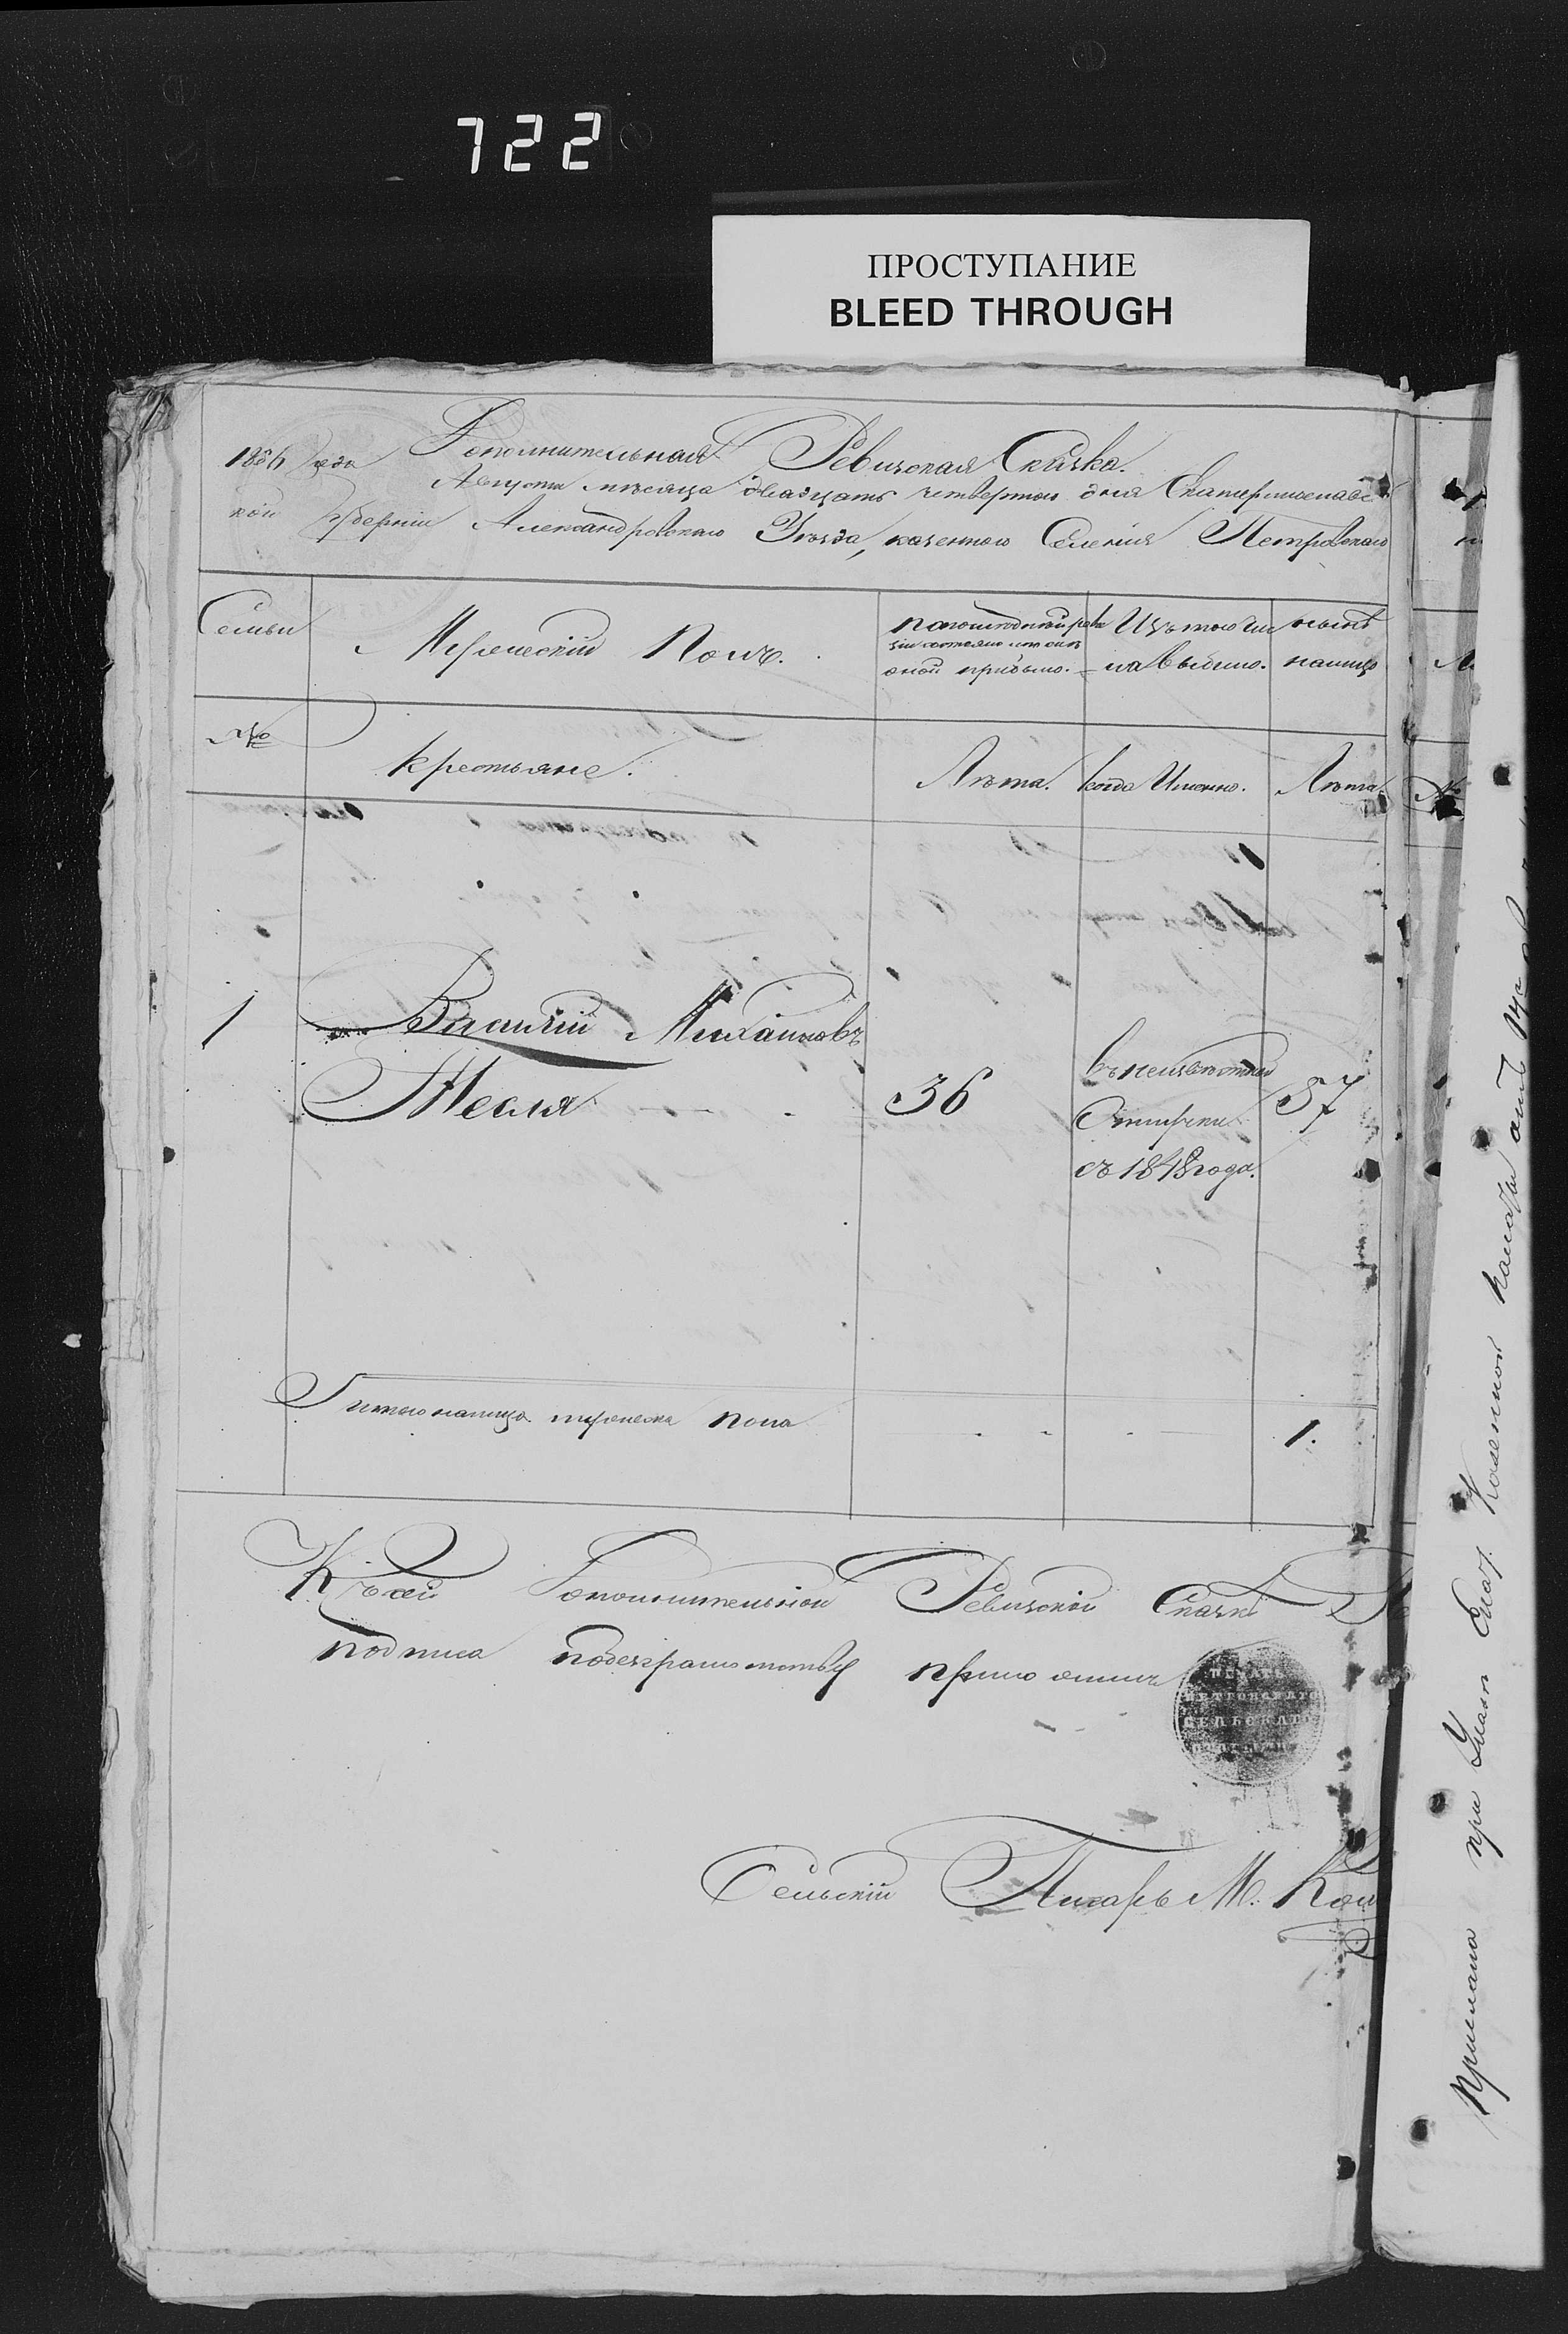 722
ПРОСТУПАНИЕ
BLEED THROUGH
Дополнительная Ревизская Сказка.
1856 года Августа месяца двадцать четвертаго дня Екатеринославс
кой губерніи Александровскаго Уезда, казенного Селенія Петровскаго
Семьи
Мужескій Полъ.
По последней реви
зіи состояло и после
оной прибыло.
Изъ того чис
ла выбыло.
ныне
налицо
№
Крестьяне.
Лета.
Когда Именно.
Лета.
№
1
Василій Михайловъ
Тесля
36
въ неизвестной
Отлучки
съ 1848 года.
57
Итого налицо мужеска пола
1.
Къ сей Дополнительной Ревизской Сказки
подписа по безграмотству приложилъ
ПЕТРОВСКАГО
СЕЛЬСКАГО
Сельскій Писарь М.
при Казенной палаты